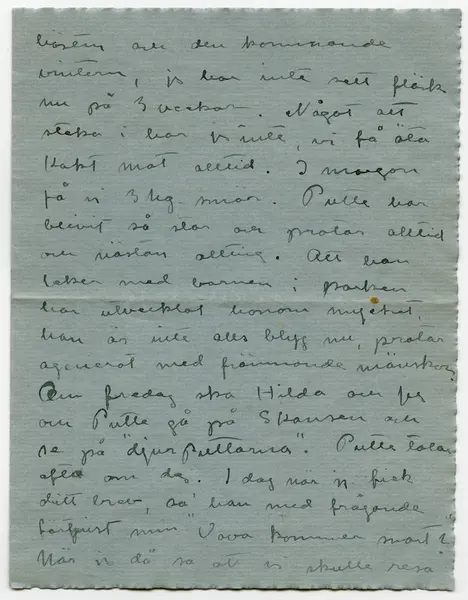 hösten och den kommande
vintern, jag har inte sett fläsk
nu på 3 veckor. Något att
steka i har jag inte, vi få äta
kokt mat alltid. I morgon
få vi 3 hg. smör. Putte har
blivit så stor och pratar alltid
om nästan allting. Att han
leker med barnen i parken
har utvecklat honom mycket,
han är inte alls blyg nu, pratar
ogenerat med främmande mänskor.
Om fredag ska Hilda och jag
om Putte gå på Skansen och
se på "djurputtarna". Putte talar
ofta om dej. I dag när jag fick
ditt brev, sa' han med frågande
min "Vova kommer snart?"
När jag då sa att vi skulle resa